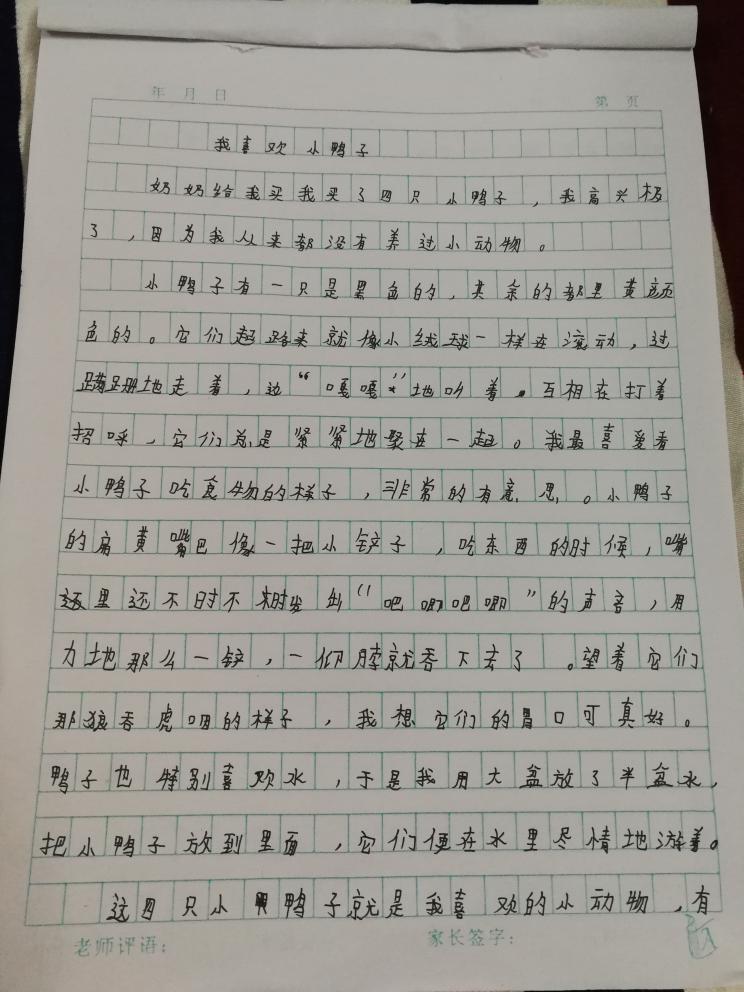 年 月 日
第 页
我喜欢小鸭子
奶奶给我买我买了四只小鸭子，我高兴极
了，因为我从来都没有养过小动物。
小鸭子有一只是黑色的，其余的都里黄颜
色的。它们起路来就像小绒球一样在滚动，过
蹒跚地走着，边“嘎嘎”地叫着。互相在打着
招呼，它们总是紧紧地聚在一起。我最喜爱看
小鸭子吃食物的样子，非常的有意思。小鸭子
的扁黄嘴巴像一把小铲子，吃东西的时候，嘴
里还不时不时发出“吧唧吧唧”的声音，用
力地那么一铲，一仰脖就吞下去了。望着它们
那狼吞虎咽的样子，我想它们的胃口可真好。
鸭子也特别喜欢水，于是我用大盆放了半盆水，
把小鸭子放到里面，它们便在水里尽情地游着。
这四只小鸭子就是我喜欢的小动物，有
老师评语： 家长签字：